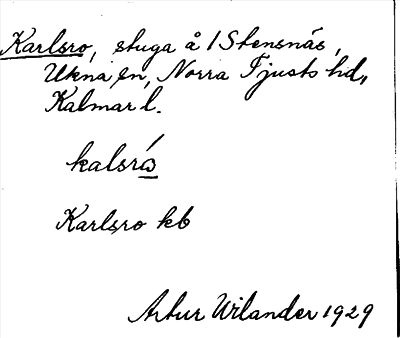 Karlsro, stuga å 1 Stensnäs,
Ukna sn, Norra Tjusts hd,
Kalmar l.
kalsró
Karlsro kb
Artur Wilander 1929